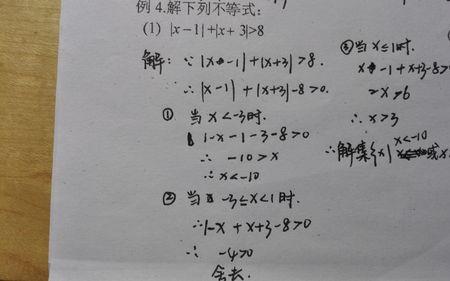 例 4.解下列不等式:
(1) |x－1|+|x+3|>8
解: ∵ |x-1|+|x+3|>8.
∴ |x-1| + |x+3|-8>0.
① 当 x<-3时.
1-x-1-3-8>0
∴ -10>x
∴ x<-10
② 当 -3≤x<1时.
∴1-x+x+3-8>0
∴ -4>0
舍去.
③ 当 x≤1时.
x-1+x+3-8>
=x>6
∴ x>3
∴解集{x| x<-10 或x